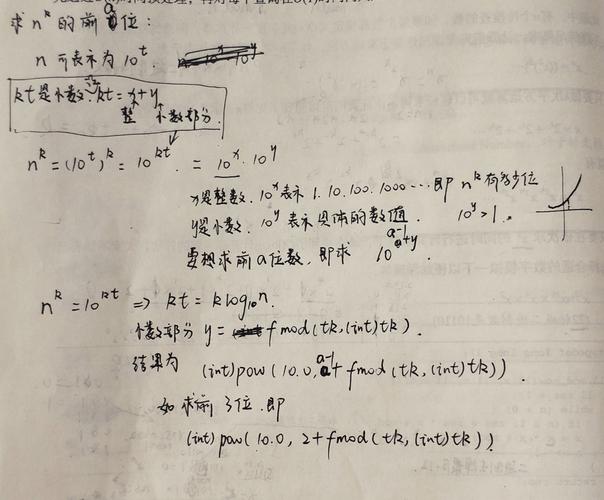 求 n^k 的前 a 位:
n 可表示为 10^t
kt是小数. 设 kt = x + y
整 小数部分
n^k = (10^t)^k = 10^kt = 10^x · 10^y
x是整数. 10^x 表示 1. 10. 100. 1000 … 即 n^k 有多少位
y是小数. 10^y 表示具体的数值. 10^y > 1.
要想求前 a 位数. 即求 10^a-1+y
n^k = 10^kt ⇒ kt = k log10 n.
小数部分 y = fmod(tk,(int)tk).
结果为 (int)pow(10.0, a-1 + fmod(tk,(int)tk)).
如 求前 3位. 即
(int)pow(10.0, 2+fmod(tk,(int)tk)).